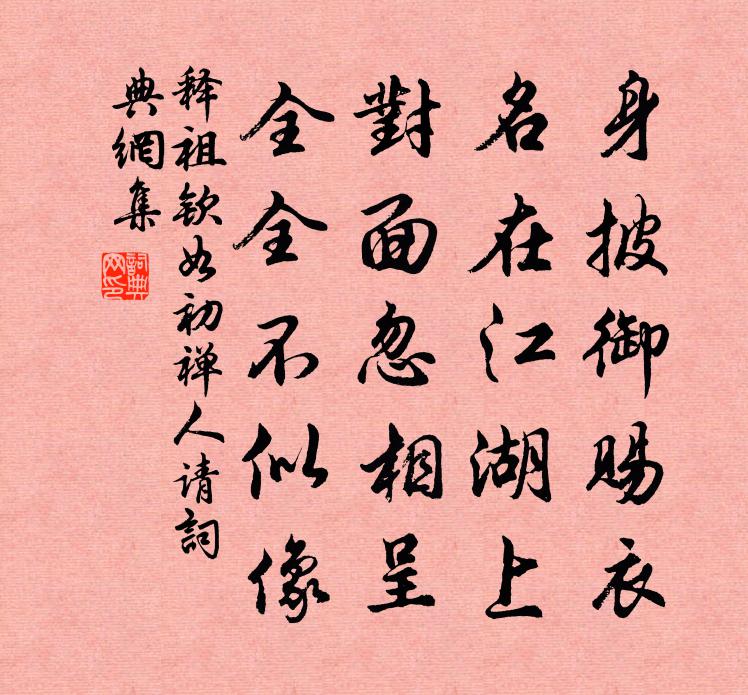 身披御賜衣
名在江湖上
對面忽相呈
全全不似像
释祖欽如初禅人请詞
典網集
詞典網印